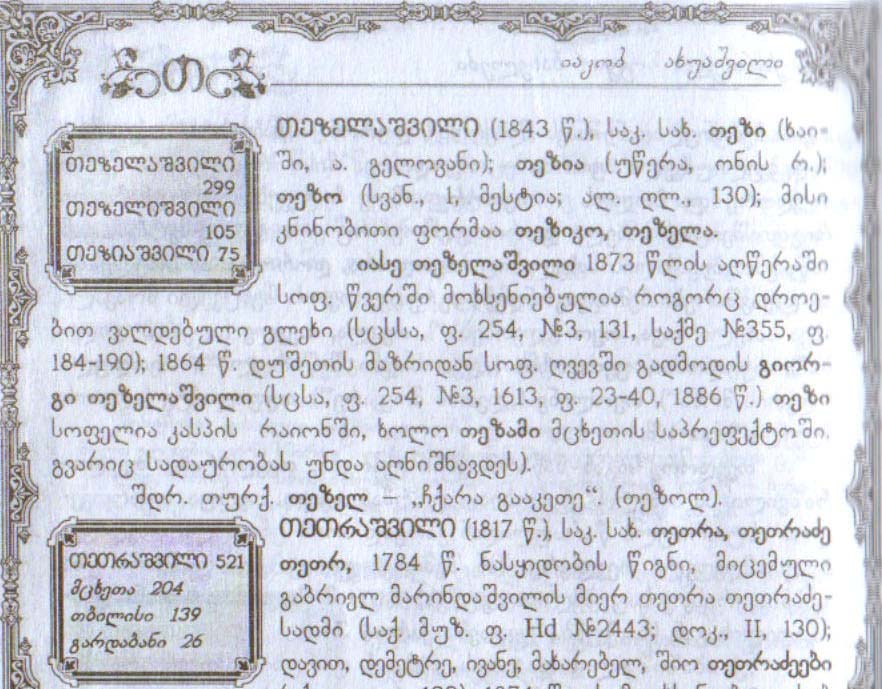 თ
იაკობ ახუაშვილი
თეზელაშვილი
299
თეზელიშვილი
105
თეზიაშვილი 75
თეზელაშვილი (1843 წ.), საკ. სახ. თეზი (ხაი-
ში, ა. გელოვანი); თეზია (უწერა, ონის რ.);
თეზო (სვან., I, მესტია; ალ. ღლ., 130); მისი
კნინობითი ფორმაა თეზიკო, თეზელა.
იასე თეზელაშვილი 1873 წლის აღწერაში
სოფ. წვერში მოხსენიებულია როგორც დროე-
ბით ვალდებული გლეხი (სცსსა, ფ. 254, №3, 131, საქმე №355, ფ.
184-190); 1864 წ. დუშეთის მაზრიდან სოფ. ღვევში გადმოდის გიორ-
გი თეზელაშვილი (სცსა, ფ. 254, №3, 1613, ფ. 23-40, 1886 წ.) თეზი
სოფელია კასპის რაიონში, ხოლო თეზამი მცხეთის საპრეფექტოში.
გვარიც სადაურობას უნდა აღნიშნავდეს).
შდრ. თურქ. თეზელ – „ჩქარა გააკეთე“ (თეზოლ).
თეთრაშვილი 521
მცხეთა 204
თბილისი 139
გარდაბანი 26
თეთრაშვილი (1817 წ.), საკ. სახ. თეთრა, თეთრაძე
თეთრ, 1784 წ. ნასყიდობის წიგნი, მიცემული
გაბრიელ მარინდაშვილის მიერ თეთრა თეთრაძე-
სადმი (საქ. მუზ. ფ. Hd №2443; დოკ., II, 130);
დავით, დემეტრე, ივანე, მახარებელ, შიო თეთრაძეები